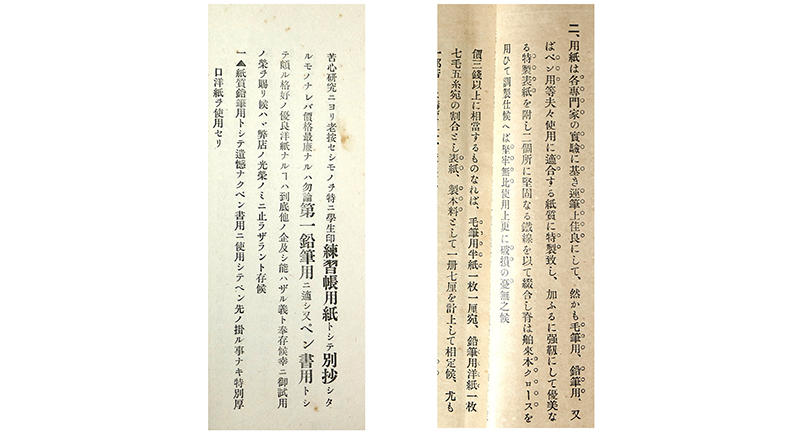 二、用紙は各專門家の實驗に基き運筆上佳良にして、然かも毛筆用、鉛筆用、又
ばペン用等夫々使用に適合する紙質に特製致し、加ふるに强靱にして優美な
る特製表紙を附し二個所に堅固なる鐵線を以て綴合し脊は舶來本クロースを
用ひて調製仕候へば堅牢無比使用上更に破損の憂無之候
價三錢以上に相當するものなれば、毛筆用半紙一枚一厘宛、鉛筆用洋紙一枚
七毛五糸宛の割合とし表紙、製本料として一册七厘を計上して相定候、尤も
苦心研究ニヨリ老按セシモノヲ特ニ學生印練習帳用紙トシテ別抄シタ
ルモノナレバ價格最廉ナルハ勿論第一鉛筆用ニ適シ又ペン書用トシ
テ頗ル格好ノ優良洋紙ナルヿハ到底他ノ企及シ能ハザル義ト奉存候幸ニ御試用
ノ榮ヲ賜リ候ハヾ弊店ノ光榮ノミニ止ラザラント存候
一▲紙質鉛筆用トシテ遺憾ナクペン書用ニ使用シテペン先ノ掛ル事ナキ特別厚
口洋紙ヲ使用セリ